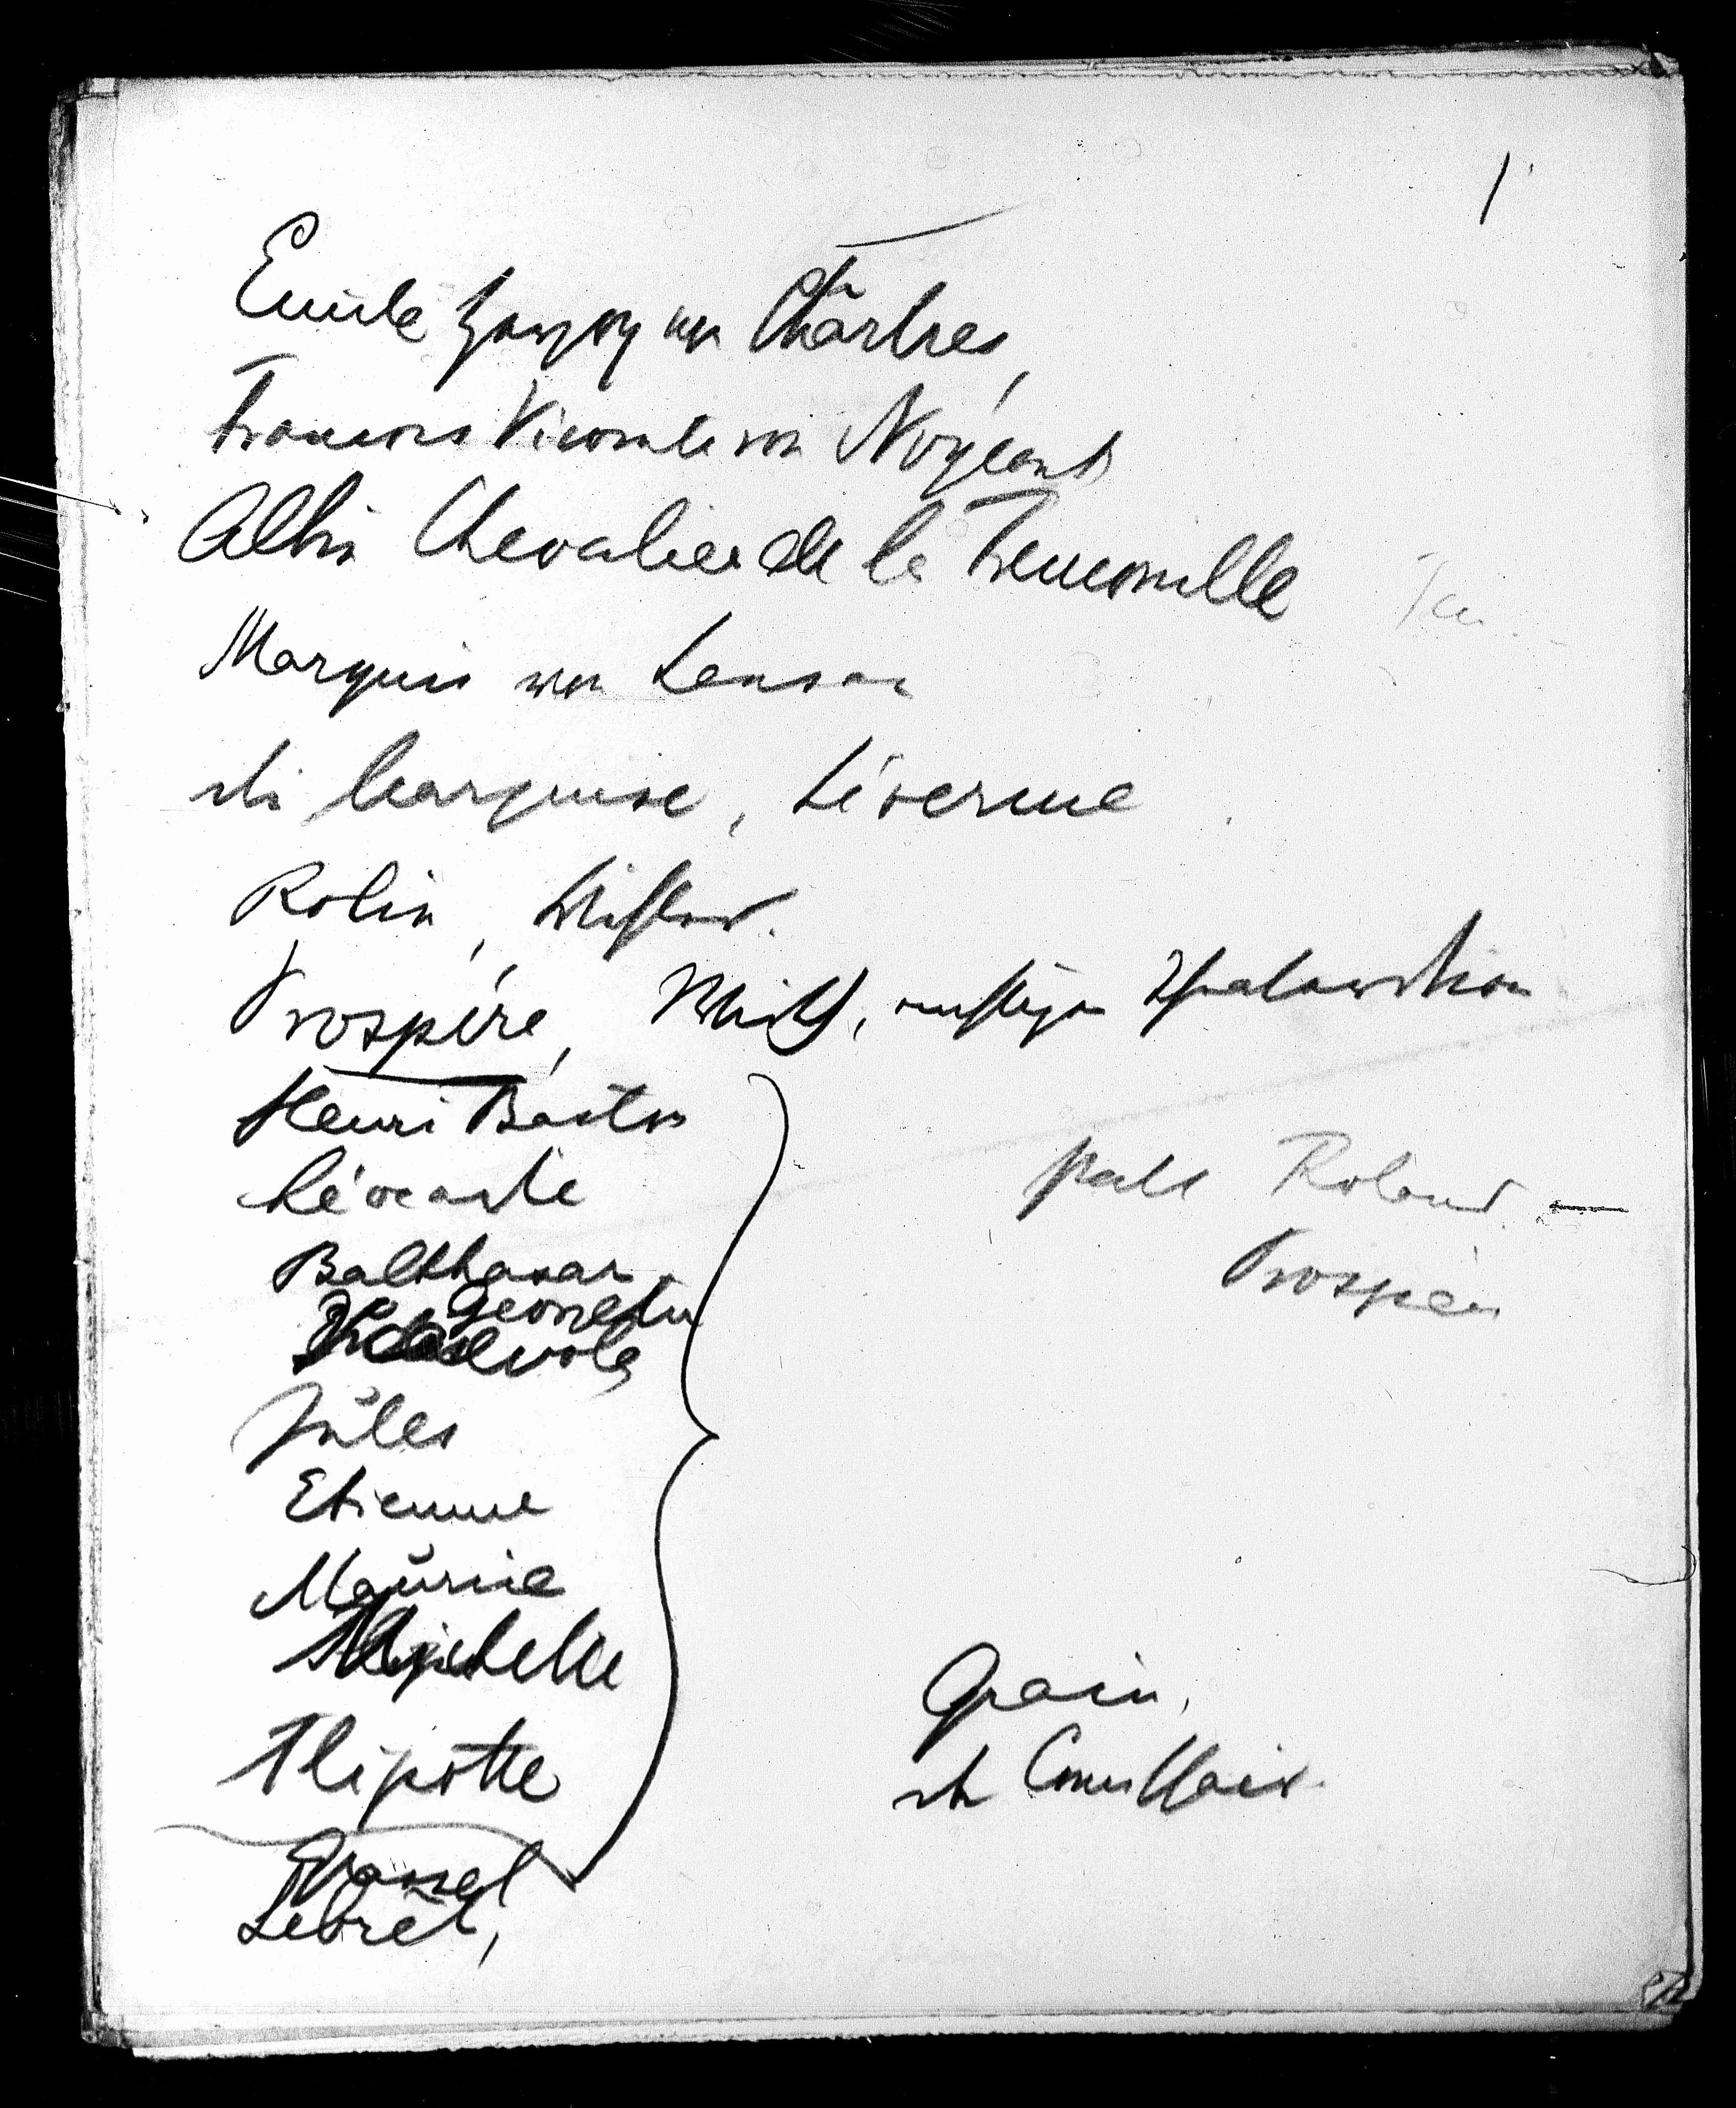 1
Emile Herzog von Chartres,
Francois Vicomte von Nogeant
Albin Chevalier de la Tremouille
Marquis von Lansac
die Marquise, Séverine
Rolin, Dichter.
Prospère, Wirth, einstiger Theaterdirektor
Henri Baston
Léocadie
Balthasar
Georgette
Jules
Etienne
Maurice
Michette
Flipotte
Grasset
Lebrêt,
statt Roland —
Prospère
Grain,
der Commissär.